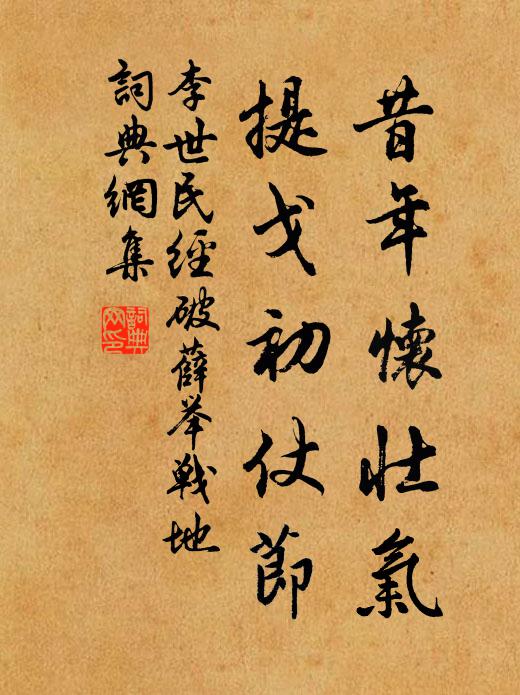 昔年懷壯氣
提戈初仗節
李世民經破薛举戰地
詞典網集
詞典網印